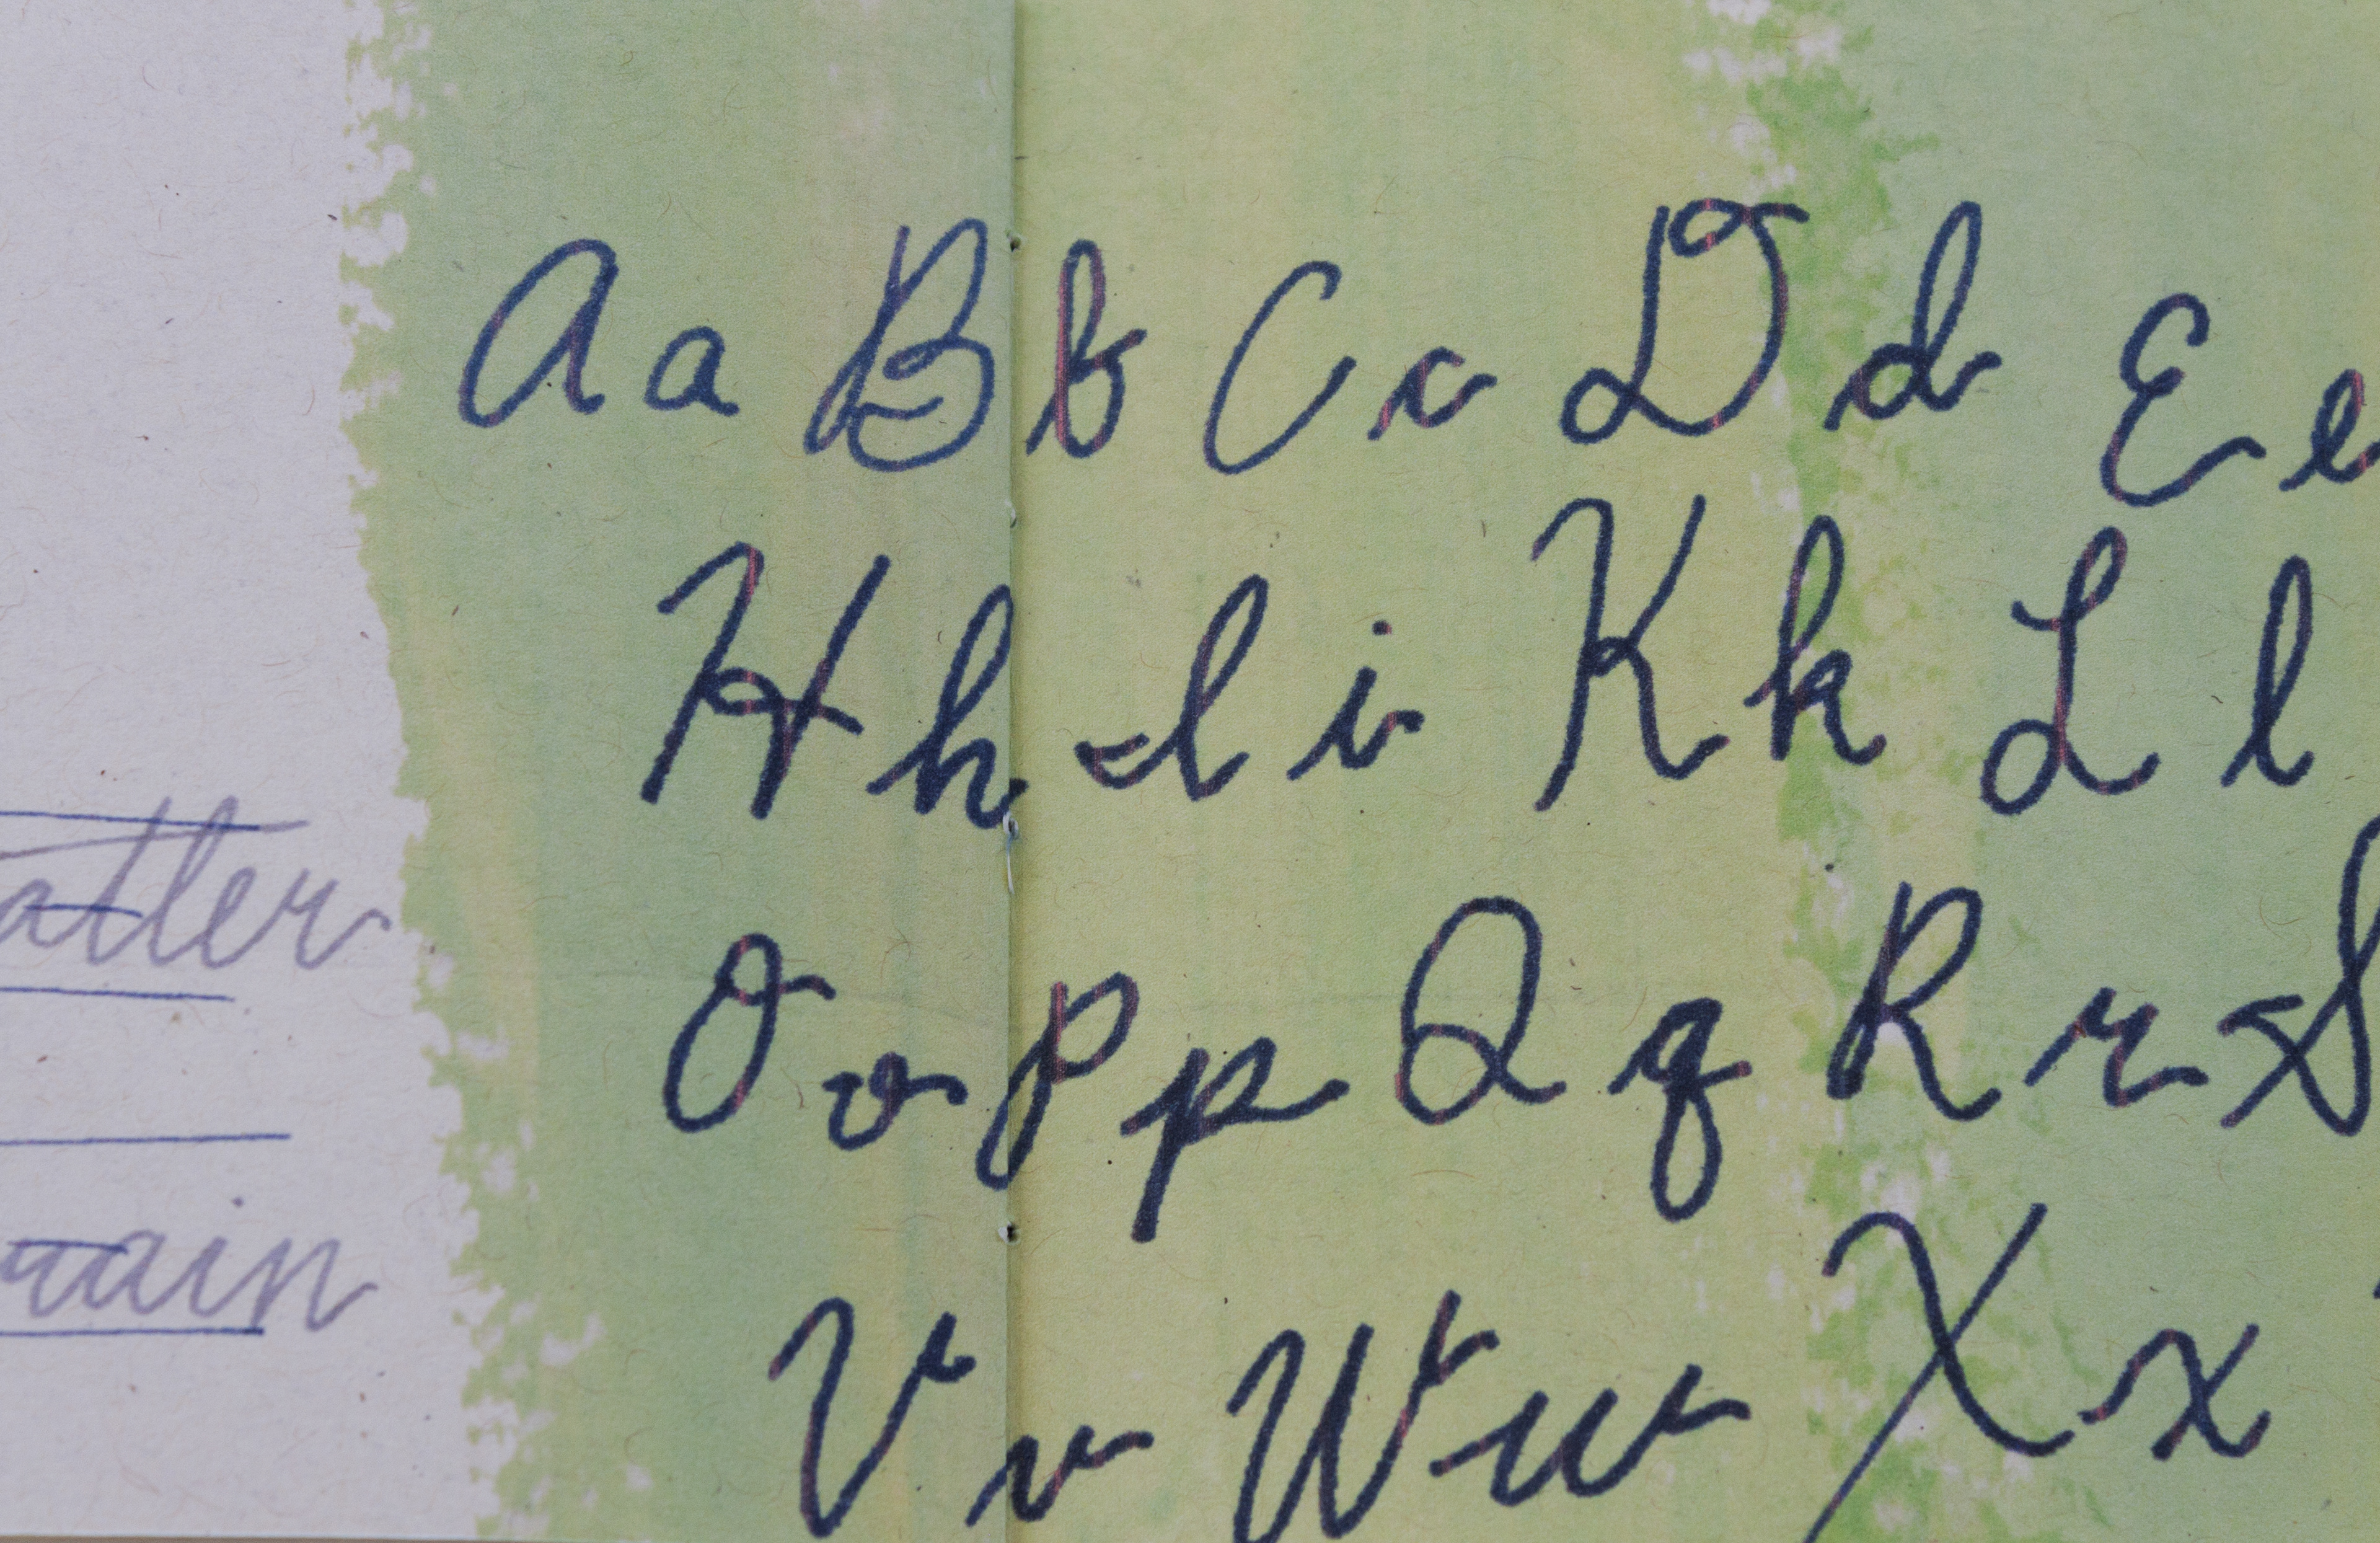 Aa Bb Cc Dd Ee
Hh Ii Kk Ll
Oo Pp Qq Rr S
Vv Ww Xx
atter
rain